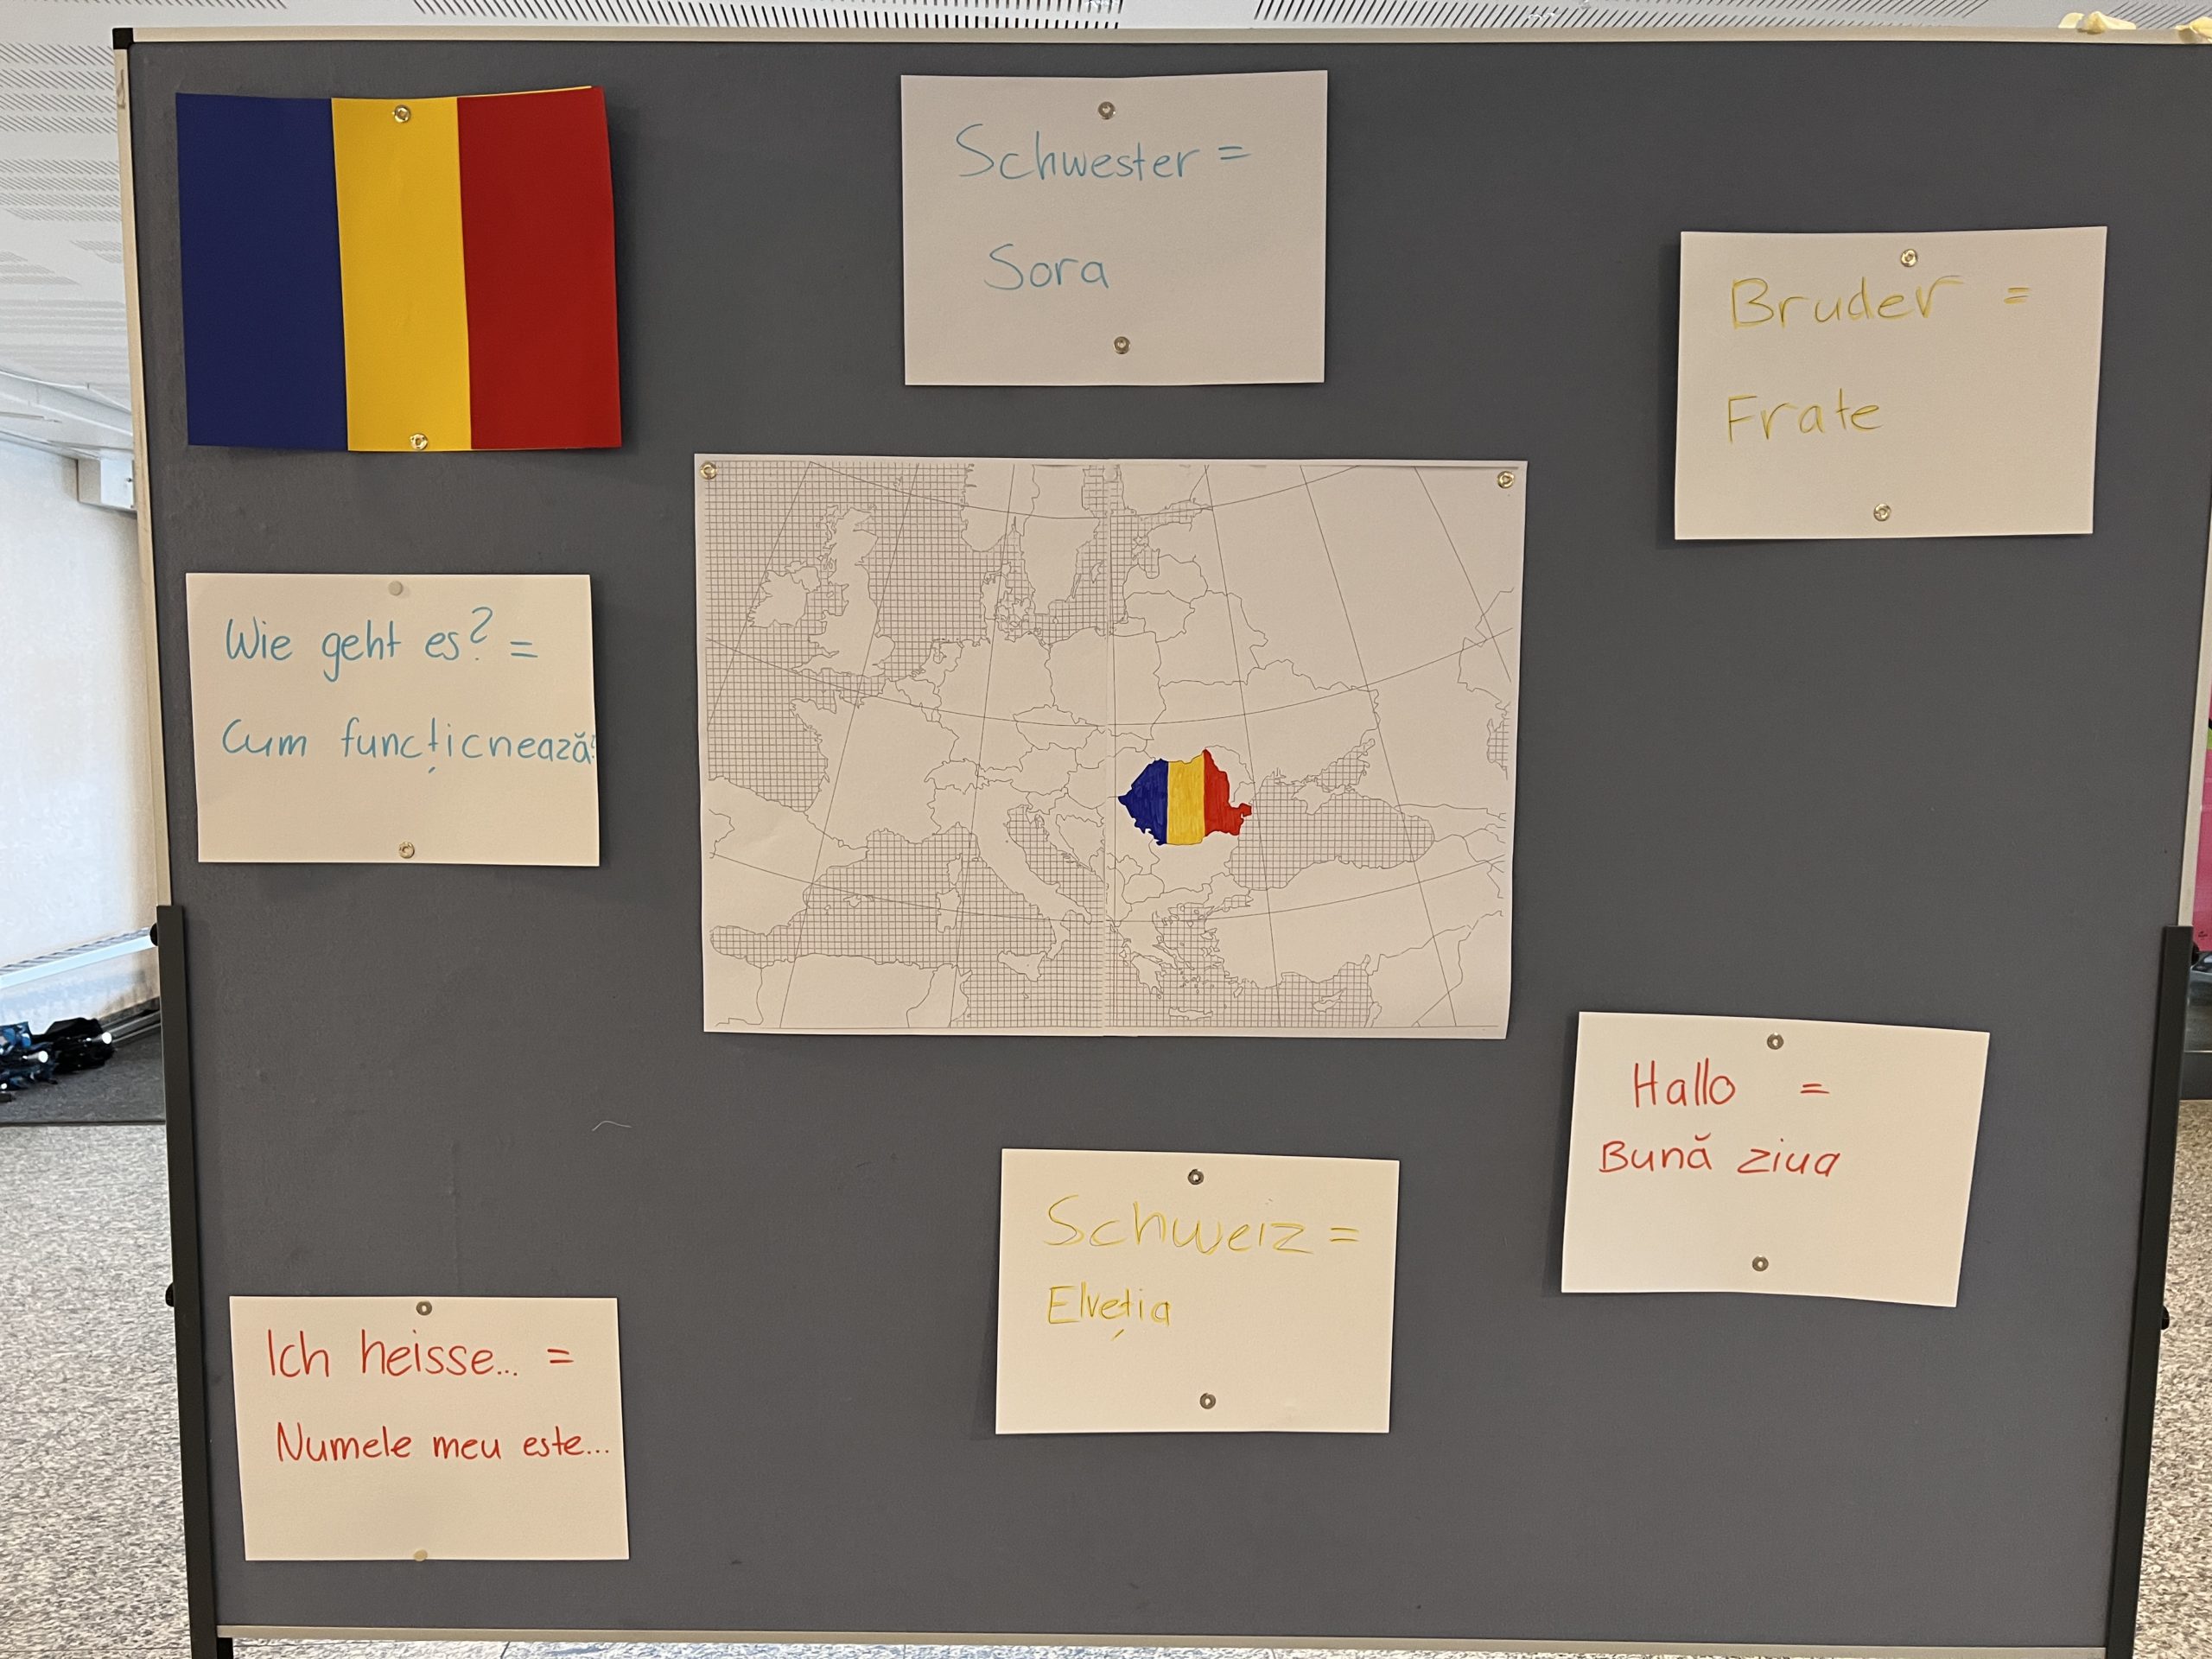 Schwester =
Sora
Bruder =
Frate
Wie geht es? =
Cum funcționează?
Hallo =
Bună ziua
Schweiz =
Elveția
Ich heisse... =
Numele meu este...